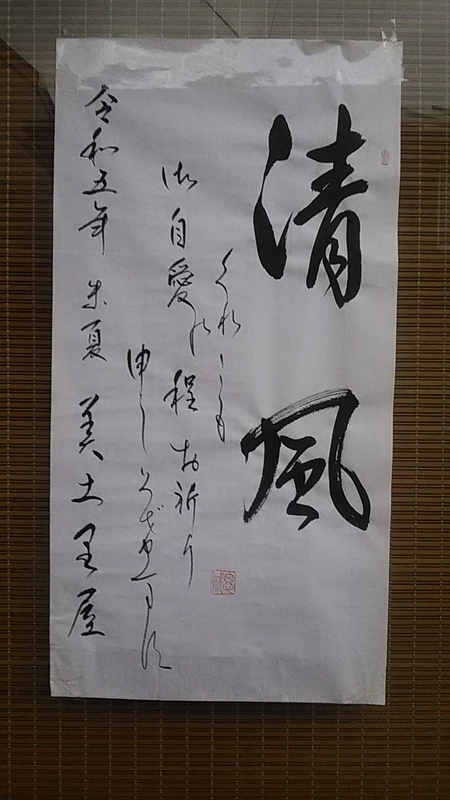 清風
くれぐれも
御自愛の程お祈り
申し
令和五年 朱夏 美土里屋